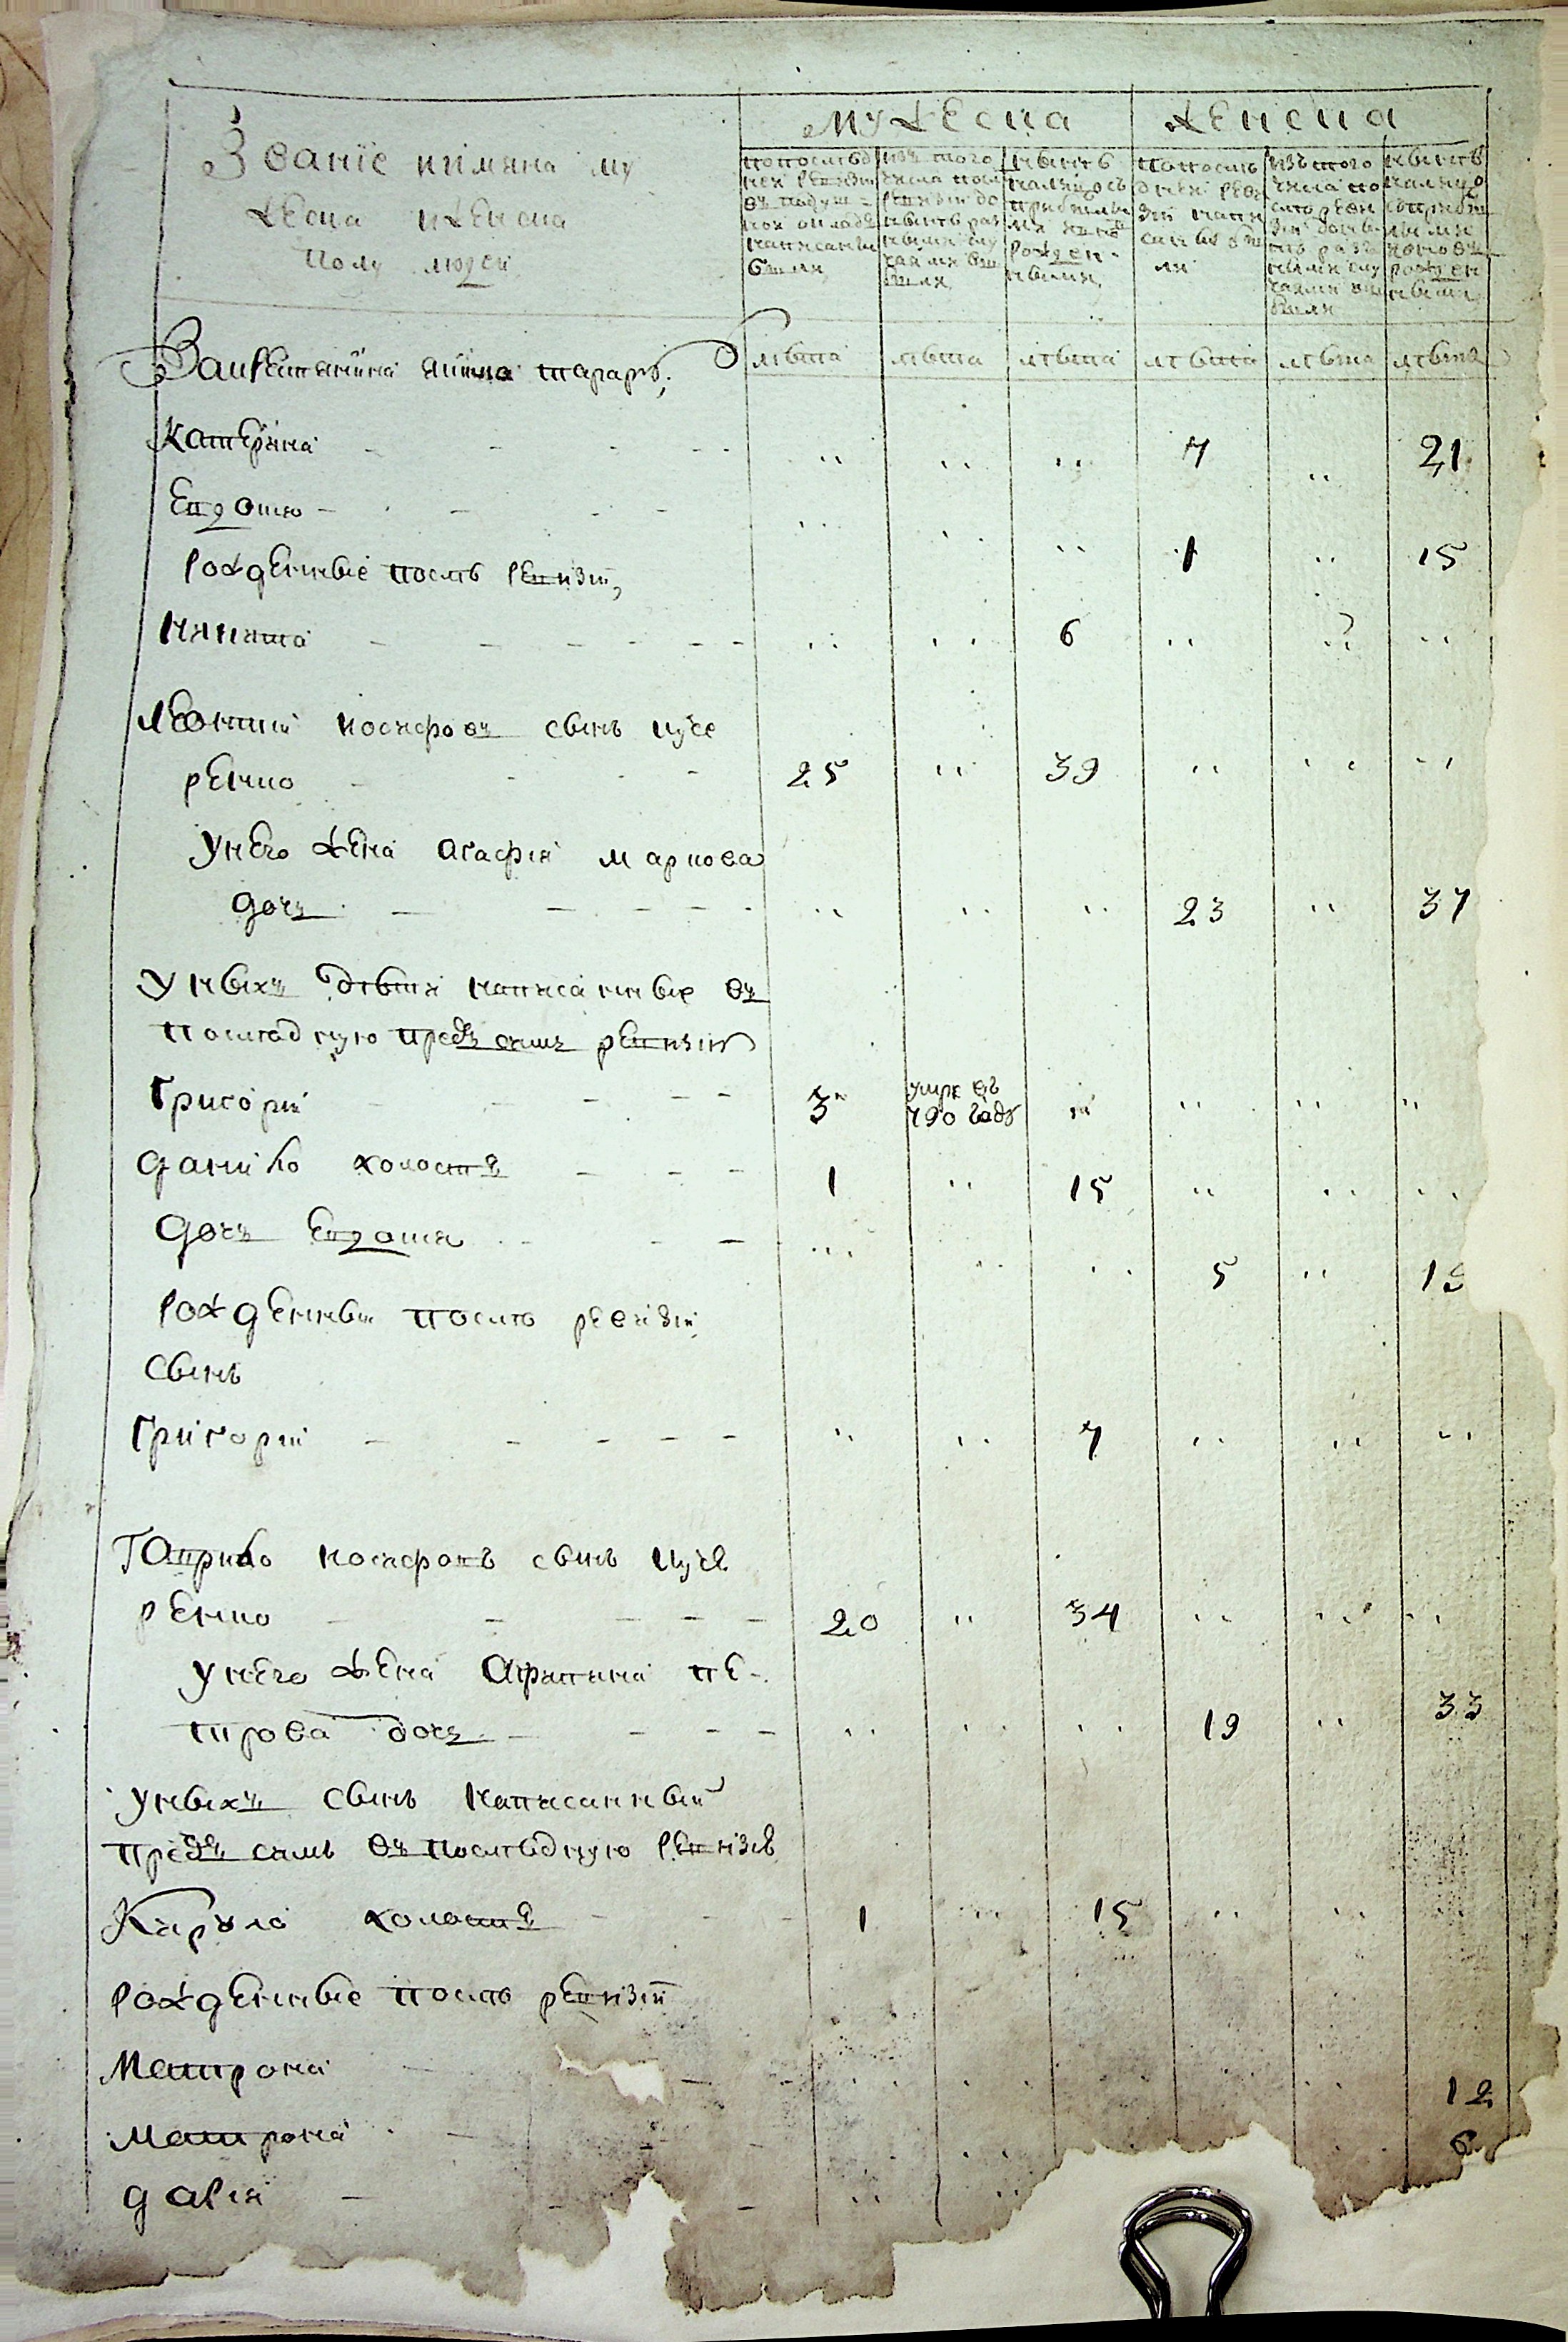 Званїе иимяна му
жеска иженска
полу людей
мужеска
женска
попослѣд
ней ревизіи
въ подуш-
ной окладъ
написаны
были
изъ того
числа посл
ревизіи до
нынѣ раз
ными слу
чаями вы
были
нынѣ
налицо съ
прибылы
ми
рожден-
ными
попослѣ
дней реви
зіи напи
саны бы
ли
изъ того
числа по
слѣ реви
зіи
нѣ раз
ными слу
чаями вы
были
нынѣ
налицо
сприбы
лыми
рожден
ными
лѣта лѣта лѣта лѣта лѣта лѣта
Катерина - - - - .. .. .. 7 .. 21
Евдокія - - - - .. .. .. 1 .. 15
рожденные послѣ ревизіи,
Никита - - - - - - .. .. 6 .. .. ..
Леонтий иосифовъ сынъ куче
ренко - - - - 25 .. 39 .. .. ..
унего жена агафія маркова
дочь - - - - - .. .. .. 23 .. 37
уныхъ дѣти написанные въ
послѣдную предъ симъ ревизіи
Григорий - - - - - 3 умре въ
790 годѣ .. .. .. ..
данило холостъ - - - 1 .. 15 .. .. ..
дочь Евдокия - - - ... .. .. 5 .. 19
рожденный послѣ ревизіи
сынъ
Григорий - - - - - .. .. 7 .. .. ..
Гаврило иосифовъ сынъ куче
ренко - - - - - 20 .. 34 .. .. ..
унего жена пе-
трова дочь - - - - .. .. .. 19 .. 33
уныхъ сынъ написанный
предъ симъ въ послѣдную ревизію
Кирило холостъ - - - 1 .. 15 .. .. ..
рожденные послѣ ревизіи
Матрона - - 12
Матрона - - - 6
дарія - - -